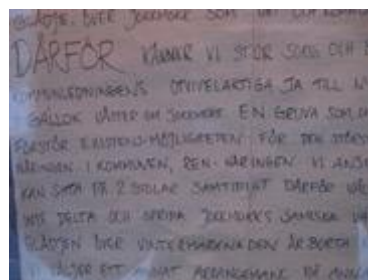 GLÄDJE. ÖVER JOKKMOKK SOM
DÄRFÖR KÄNNER VI STOR SORG OCH
KOMMUNLEDNINGENS OTVIVELAKTIGA JA TILL
GÁLLOK VÄSTER OM JOKKMOKK. EN GRUVA SOM
FÖRSTÖR EXISTENS-MÖJLIGHETEN FÖR DEN STÖRSTA
NÄRINGEN I KOMMUNEN, REN-NÄRINGEN. VI ANSER
KAN SITTA PÅ 2 STOLAR SAMTIDIGT DÄRFÖR
INTE DELTA OCH SPRIDA JOKKMOKKS SAMISKA
GLÄDJEN ÖVER VINTERMARKNADEN ÄR BORTA
VI VÄLJER ETT ANNAT ARRANGEMANG